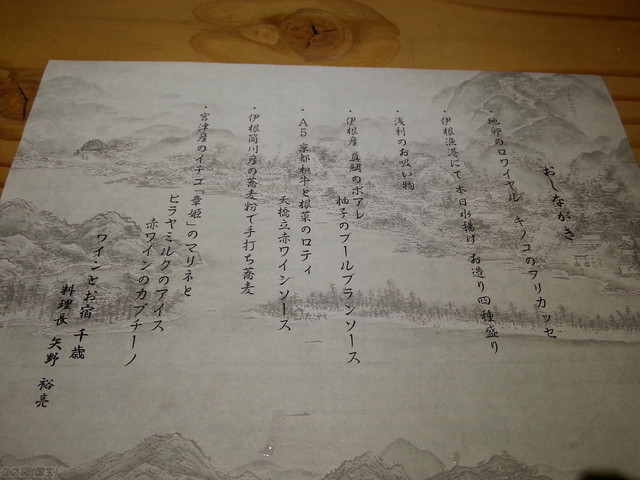 おしながき
・地卵のロワイヤル キノコのフリカッセ
・伊根漁港にて本日水揚げ お造り四種盛り
・浅利のお吸い物
・伊根産 真鯛のポアレ
柚子のブールブランソース
・A5 京都和牛と根菜のロティ
天橋立赤ワインソース
・伊根筒川産の蕎麦粉で手打ち蕎麦
・宮津産のイチゴ「章姫」のマリネと
ヒラヤミルクのアイス
赤ワインのカプチーノ
ワインとお宿 千歳
料理長 矢野 裕亮